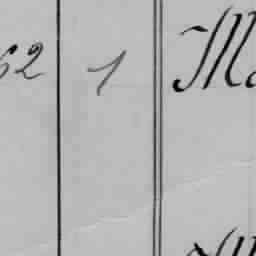 62 1 Ma